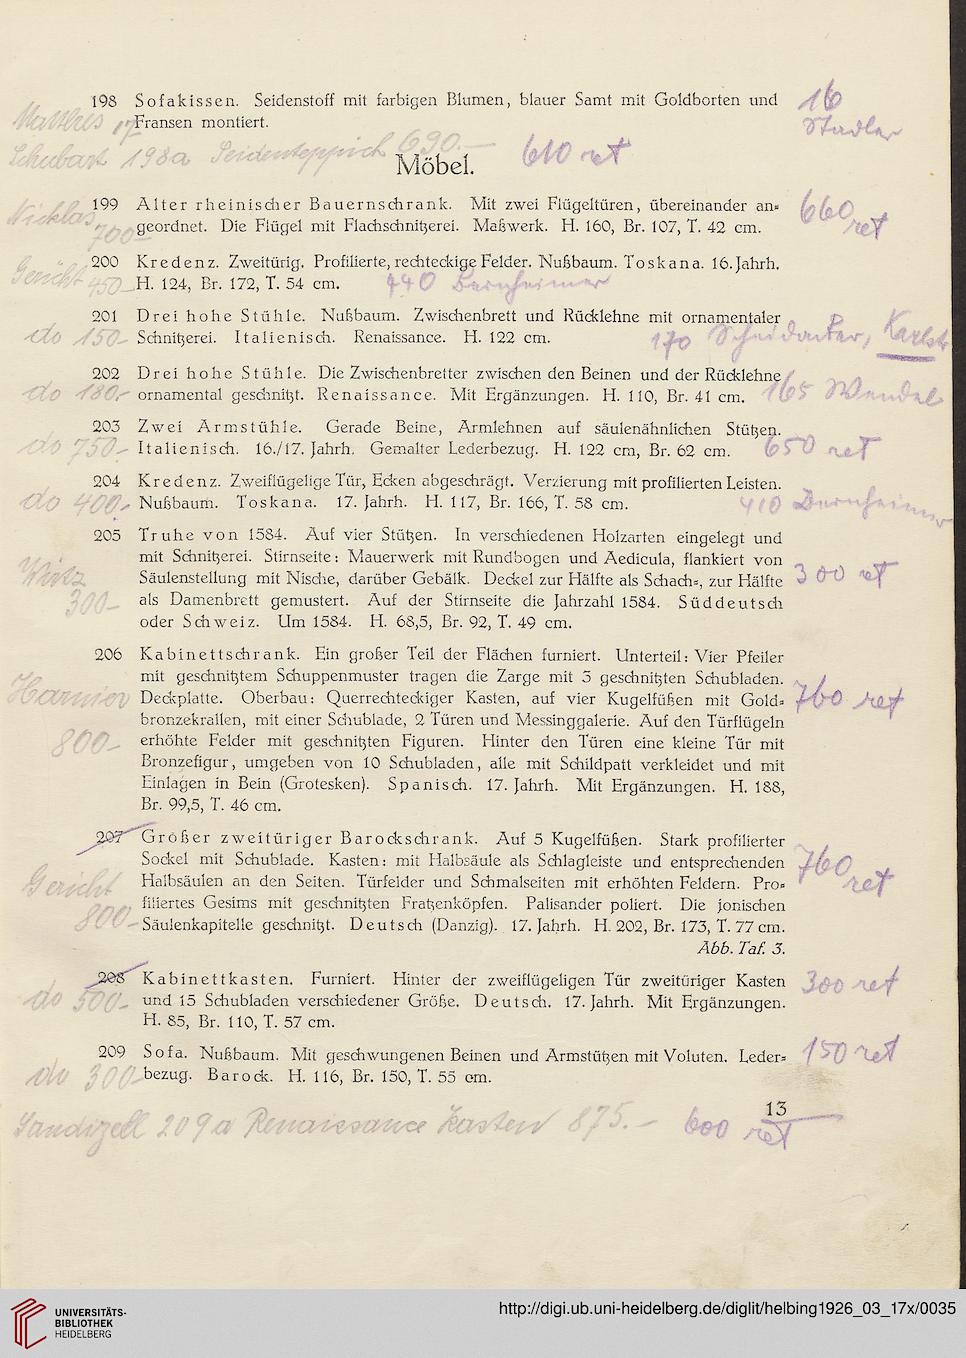 198 Sofakissen. Seidenstoff mit farbigen Blumen, blauer Samt mit Goldborten und 16
Fransen montiert. Stadler
Schubart 198a Seidenteppich 690.— 610 ret
Möbel.
199 Alter rheinischer Bauernschrank. Mit zwei Flügeltüren, übereinander an- 660
Nicklas 700— geordnet. Die Flügel mit Flachschnitzerei. Maßwerk. H. 160, Br. 107, T. 42 cm. ret
200 Kredenz. Zweitürig. Profilierte, rechteckige Felder. Nußbaum. Toskana. 16. Jahrh.
Gericht 450— H. 124, Br. 172, T. 54 cm. 440 Bernheimer
201 Drei hohe Stühle. Nußbaum. Zwischenbrett und Rücklehne mit ornamentaler
do 150— Schnitzerei. Italienisch. Renaissance. H. 122 cm. 170
202 Drei hohe Stühle. Die Zwischenbretter zwischen den Beinen und der Rücklehne
do 180.- ornamental geschnitzt. Renaissance. Mit Ergänzungen. H. 110, Br. 41 cm. 165 Wendel
203 Zwei Armstühle. Gerade Beine, Armlehnen auf säulenähnlichen Stützen.
do 750.- Italienisch. 16./17. Jahrh. Gemalter Lederbezug. H. 122 cm, Br. 62 cm. 650 ret
204 Kredenz. Zweiflügelige Tür, Ecken abgeschrägt. Verzierung mit profilierten Leisten.
do 400.- Nußbaum. Toskana. 17. Jahrh. H. 117, Br. 166, T. 58 cm. 410 Bernheimer
205 Truhe von 1584. Auf vier Stützen. In verschiedenen Holzarten eingelegt und
mit Schnitzerei. Stirnseite: Mauerwerk mit Rundbogen und Aedicula, flankiert von
Säulenstellung mit Nische, darüber Gebälk. Deckel zur Hälfte als Schach-, zur Hälfte 300 ret
300— als Damenbrett gemustert. Auf der Stirnseite die Jahrzahl 1584. Süddeutsch
oder Schweiz. Um 1584. H. 68,5, Br. 92, T. 49 cm.
206 Kabinettschrank. Ein großer Teil der Flächen furniert. Unterteil: Vier Pfeiler
mit geschnitztem Schuppenmuster tragen die Zarge mit 3 geschnitzten Schubladen.
Deckplatte. Oberbau: Querrechteckiger Kasten, auf vier Kugelfüßen mit Gold- 760 ret
bronzekrallen, mit einer Schublade, 2 Türen und Messinggalerie. Auf den Türflügeln
800— erhöhte Felder mit geschnitzten Figuren. Hinter den Türen eine kleine Tür mit
Bronzefigur, umgeben von 10 Schubladen, alle mit Schildpatt verkleidet und mit
Einlagen in Bein (Grotesken). Spanisch. 17. Jahrh. Mit Ergänzungen. H. 188,
Br. 99,5, T. 46 cm.
207 Großer zweitüriger Barockschrank. Auf 5 Kugelfüßen. Stark profilierter
Sockel mit Schublade. Kasten: mit Halbsäule als Schlagleiste und entsprechenden 760
Gericht Halbsäulen an den Seiten. Türfelder und Schmalseiten mit erhöhten Feldern. Pro- ret
filiertes Gesims mit geschnitzten Fratzenköpfen. Palisander poliert. Die jonischen
800— Säulenkapitelle geschnitzt. Deutsch (Danzig). 17. Jahrh. H. 202, Br. 173, T. 77 cm.
Abb. Taf. 3.
208 Kabinettkasten. Furniert. Hinter der zweiflügeligen Tür zweitüriger Kasten 300 ret
do 500— und 15 Schubladen verschiedener Größe. Deutsch. 17. Jahrh. Mit Ergänzungen.
H. 85, Br. 110, T. 57 cm.
209 Sofa. Nußbaum. Mit geschwungenen Beinen und Armstützen mit Voluten. Leder- 150 ret
do 300— bezug. Barock. H. 116, Br. 150, T. 55 cm.
13
Sandizell 209a Renaissance Kasten 875.— 600 ret
UNIVERSITÄTS-
BIBLIOTHEK
HEIDELBERG
http://digi.ub.uni-heidelberg.de/diglit/helbing1926_03_17x/0035